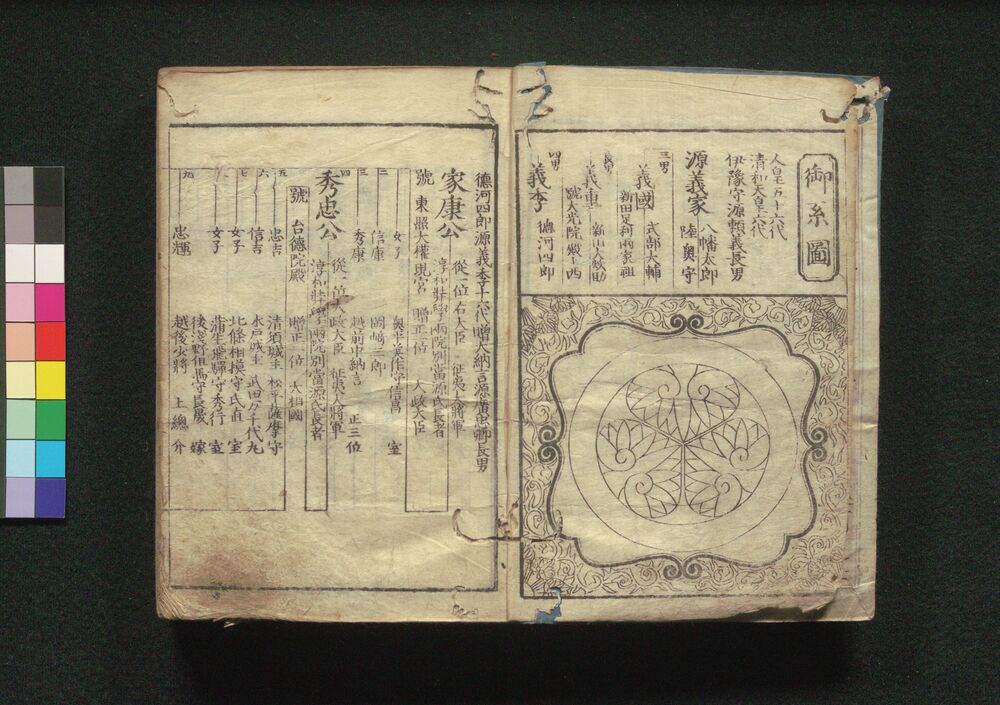 御系圖
人皇五十六代
清和天皇六代
伊豫守源頼義長男
源義家 八幡太郎 陸奥守
三男
義國 式部大輔
新田足利両家祖
長男
義重 新田大炊助
號大光院殿
四男
義季 徳河四郎
徳河四郎源義季十六代贈大納言源廣忠卿長男
家康公 從一位右大臣 征夷大將軍
淳和奨學両院別當源氏長者
號 東照大權現宮 贈正一位 大政大臣
女子 奥平美作守信昌 室
二 信康 岡崎三郎
三 秀康 越前中納言 正三位
四
秀忠公 從一位大政大臣 征夷大將軍
淳和奨學両院別當源氏長者
號 台德院殿 贈正一位 大相國
五 忠吉 清須城主 松平薩摩守
六 信吉 水戸城主 武田万千代丸
七 女子 北條相模守氏直 室
女子 蒲生飛騨守秀行 室
後浅野但馬守長晟 嫁
九 忠輝 越後少將 上總介